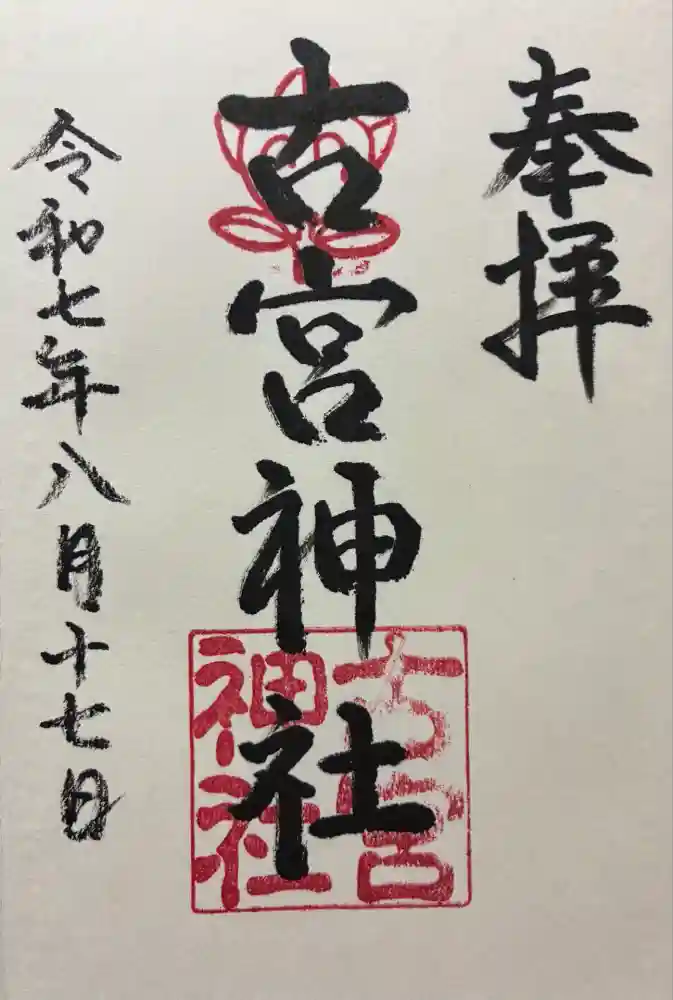 奉拝
古宮神社
古宮
神社
令和七年八月十七日